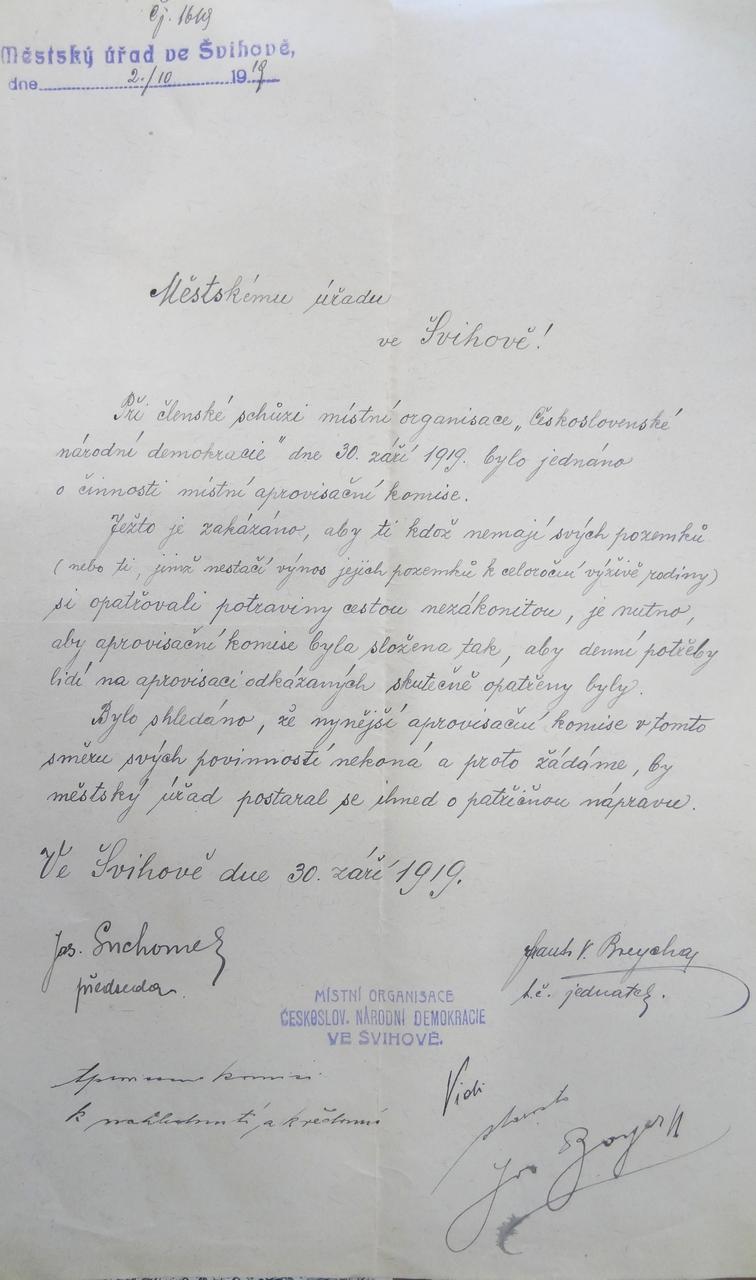 čj. 1619
Městský úřad ve Švihově,
dne 2./10 1919
Městskému úřadu
ve Švihově!
Při členské schůzi místní organisace „Československé
národní demokracie" dne 30. září 1919. bylo jednáno
o činnosti místní aprovisační komise.
Ježto je zakázáno, aby ti kdož nemají svých pozemků
(nebo ti, jimž nestačí výnos jejich pozemků k celoroční výživě rodiny)
si opatřovali potraviny cestou nezákonitou, je nutno,
aby aprovisační komise byla složena tak, aby denní potřeby
lidí na aprovisaci odkázaných skutečně opatřeny byly.
Bylo shledáno, že nynější aprovisační komise v tomto
směru svých povinností nekoná a proto žádáme, by
městský úřad postaral se ihned o patřičnou nápravu.
Ve Švihově dne 30. září 1919.
Jos. Suchomel
předseda.
Frant. V. Breycha
t.č. jednatel.
MÍSTNÍ ORGANISACE
ČESKOSLOV. NÁRODNÍ DEMOKRACIE
VE ŠVIHOVĚ.
komisi
k nahlédnutí a
Vidi
starosta
Jos